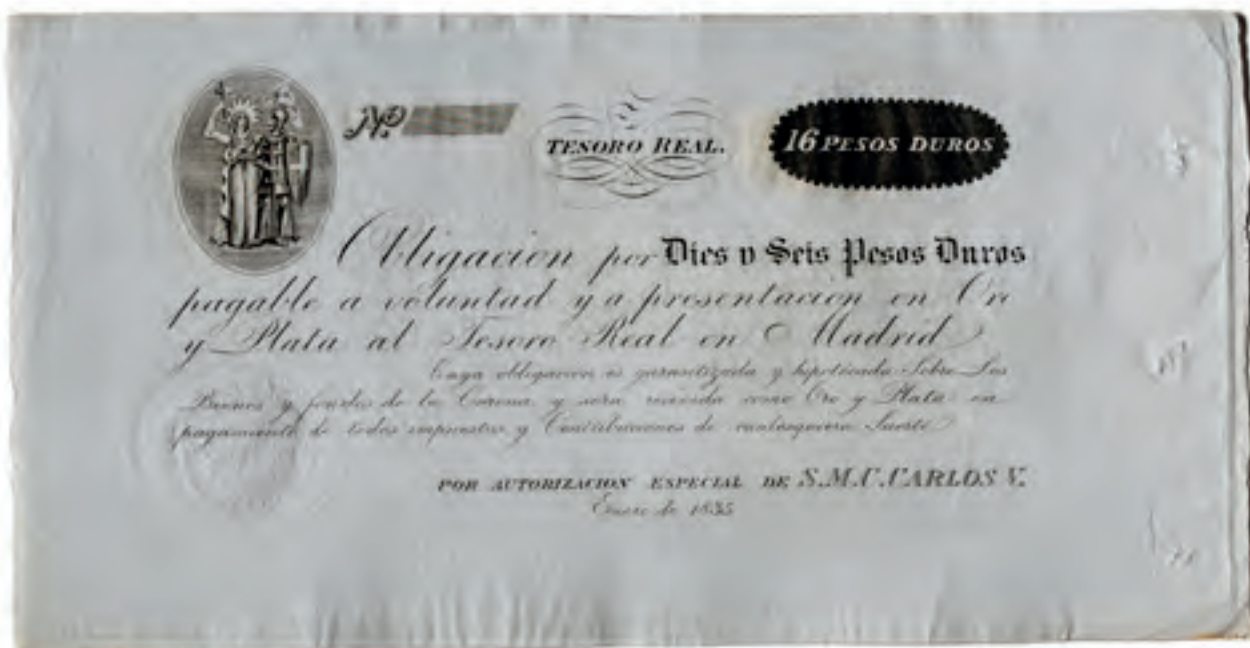 No.
TESORO REAL.
16 PESOS DUROS
Obligacion por Dies y Seis Pesos Duros
pagable a voluntad y a presentacion en Oro
y Plata al Tesoro Real en Madrid
Cuya obligacion es garantizada y hipotecada Sobre Los
Bienes y fondos de la Corona y sera recivida como Oro y Plata en
pagamiento de todos impuestos y Contribuciones de cualesquiera Suerte
POR AUTORIZACION ESPECIAL DE S.M.C. CARLOS V.
Enero de 1835